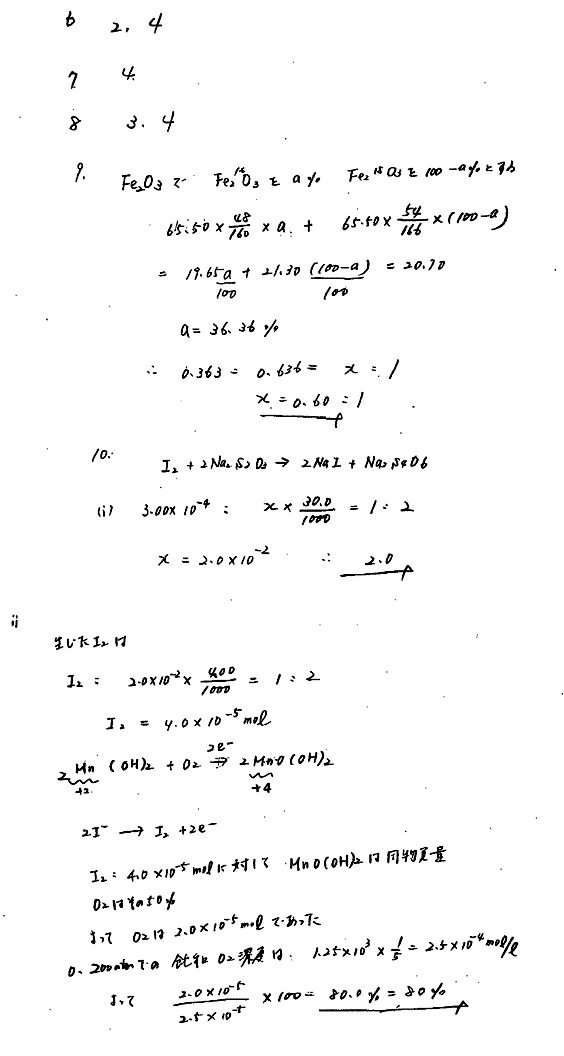 6 2. 4
7 4.
8 3. 4
9. Fe₂O₃で Fe₂¹⁶O₃を a% Fe₂¹⁸O₃を 100-a%とする
65.50 × 48/160 × a + 65.50 × 54/166 × (100-a)
= 19.65a/100 + 21.30 (100-a)/100 = 20.70
a = 36.36 %
∴ 0.363 : 0.636 = x : 1
x : = 0.60 : 1
10. I₂ + 2Na₂S₂O₃ → 2NaI + Na₂S₄O₆
(i) 3.00×10⁻⁴ : x × 30.0/1000 = 1 : 2
x = 2.0×10⁻² ∴ 2.0
ii
生じたI₂は
I₂ : 2.0×10⁻² × 4.00/1000 = 1 : 2
I₂ = 4.0×10⁻⁵ mol
2e⁻
2Mn(OH)₂ + O₂ → 2MnO(OH)₂
+2 +4
2I⁻ → I₂ + 2e⁻
I₂ : 4.0×10⁻⁵molに対して MnO(OH)₂は同物質量
O₂はその50%
よって O₂は 2.0×10⁻⁵mol であった
0.200atmでの 飽和O₂濃度は 1.25×10³ × 1/5 = 2.5×10⁻⁴mol/l
よって 2.0×10⁻⁵/2.5×10⁻⁵ ×100 = 80.0% = 80%